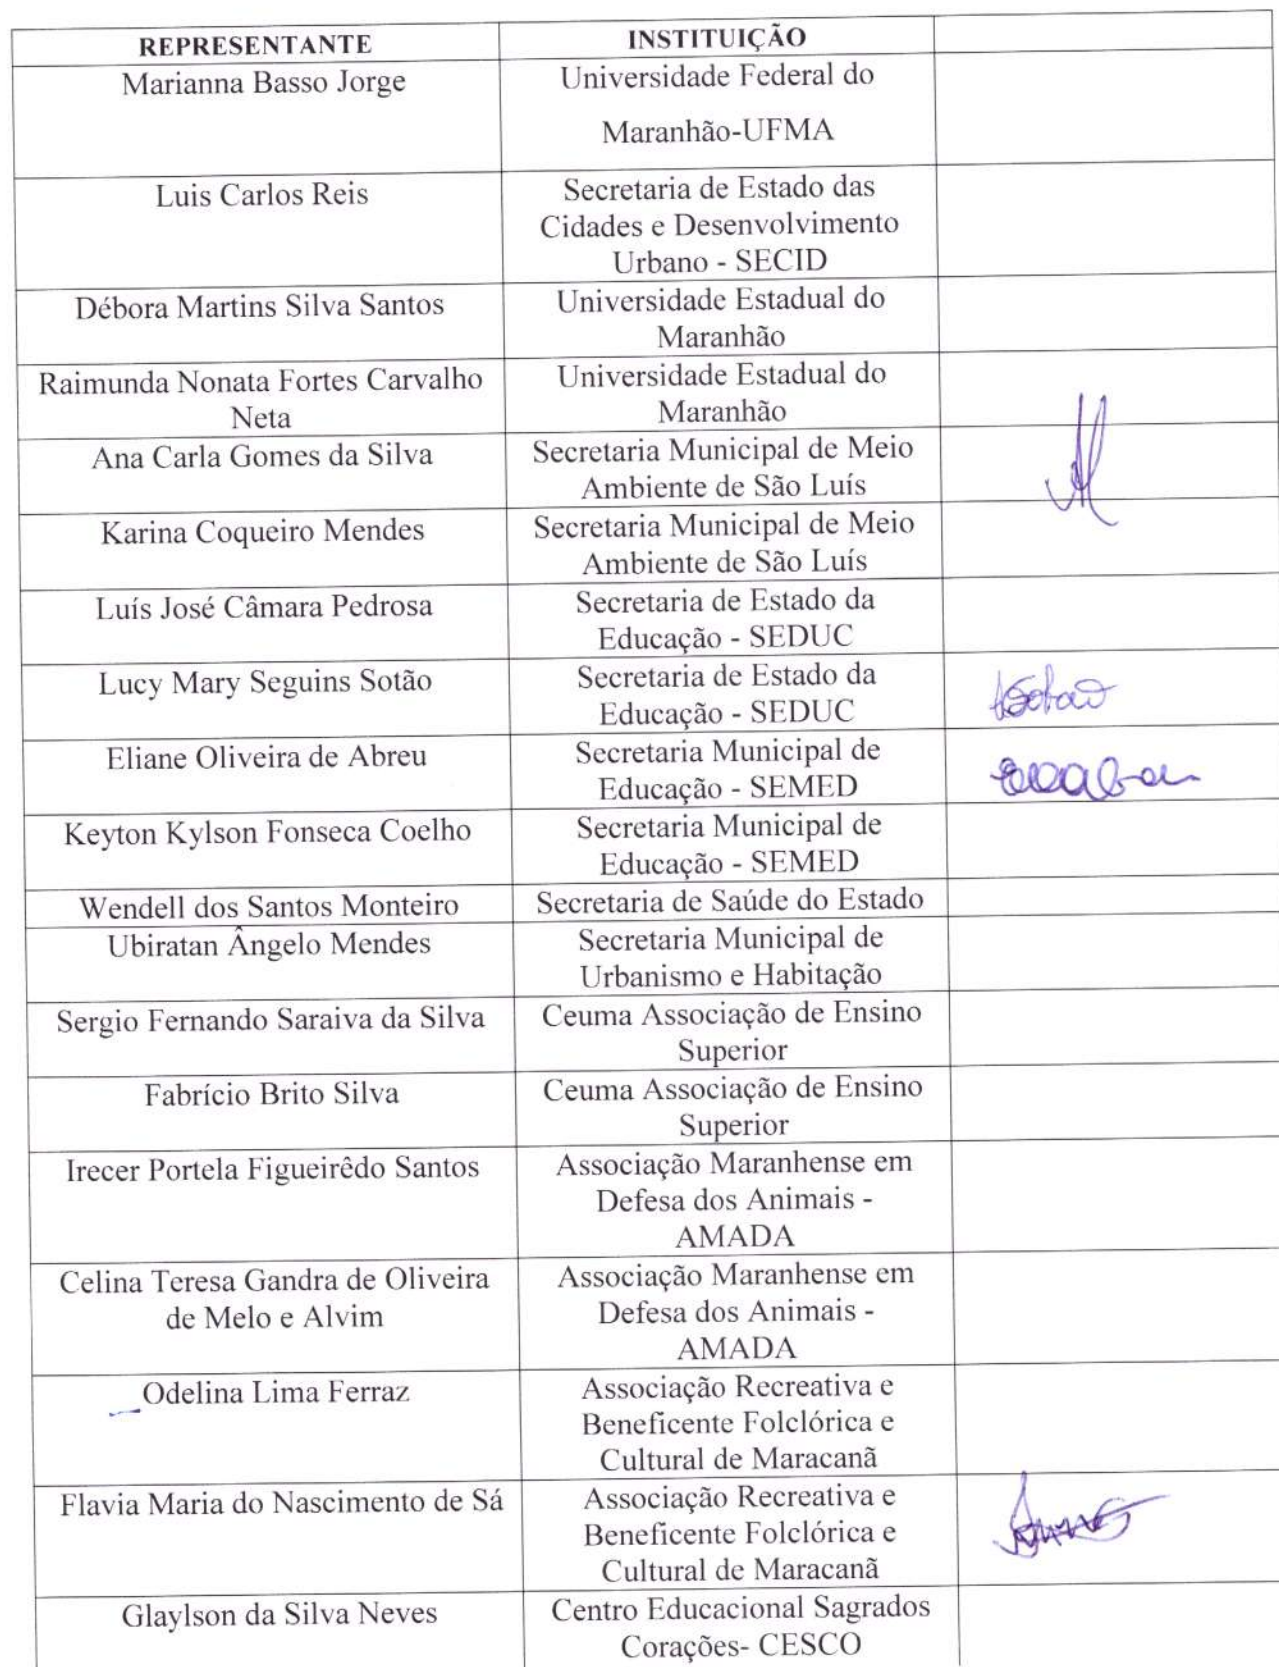 REPRESENTANTE
INSTITUIÇÃO
Marianna Basso Jorge
Universidade Federal do
Maranhão-UFMA
Luis Carlos Reis
Secretaria de Estado das
Cidades e Desenvolvimento
Urbano - SECID
Débora Martins Silva Santos
Universidade Estadual do
Maranhão
Raimunda Nonata Fortes Carvalho
Neta
Universidade Estadual do
Maranhão
Ana Carla Gomes da Silva
Secretaria Municipal de Meio
Ambiente de São Luís
Karina Coqueiro Mendes
Secretaria Municipal de Meio
Ambiente de São Luís
Luís José Câmara Pedrosa
Secretaria de Estado da
Educação - SEDUC
Lucy Mary Seguins Sotão
Secretaria de Estado da
Educação - SEDUC
Eliane Oliveira de Abreu
Secretaria Municipal de
Educação - SEMED
Keyton Kylson Fonseca Coelho
Secretaria Municipal de
Educação - SEMED
Wendell dos Santos Monteiro
Secretaria de Saúde do Estado
Ubiratan Ângelo Mendes
Secretaria Municipal de
Urbanismo e Habitação
Sergio Fernando Saraiva da Silva
Ceuma Associação de Ensino
Superior
Fabrício Brito Silva
Ceuma Associação de Ensino
Superior
Irecer Portela Figueirêdo Santos
Associação Maranhense em
Defesa dos Animais -
AMADA
Celina Teresa Gandra de Oliveira
de Melo e Alvim
Associação Maranhense em
Defesa dos Animais -
AMADA
Odelina Lima Ferraz
Associação Recreativa e
Beneficente Folclórica e
Cultural de Maracanã
Flavia Maria do Nascimento de Sá
Associação Recreativa e
Beneficente Folclórica e
Cultural de Maracanã
Glaylson da Silva Neves
Centro Educacional Sagrados
Corações- CESCO